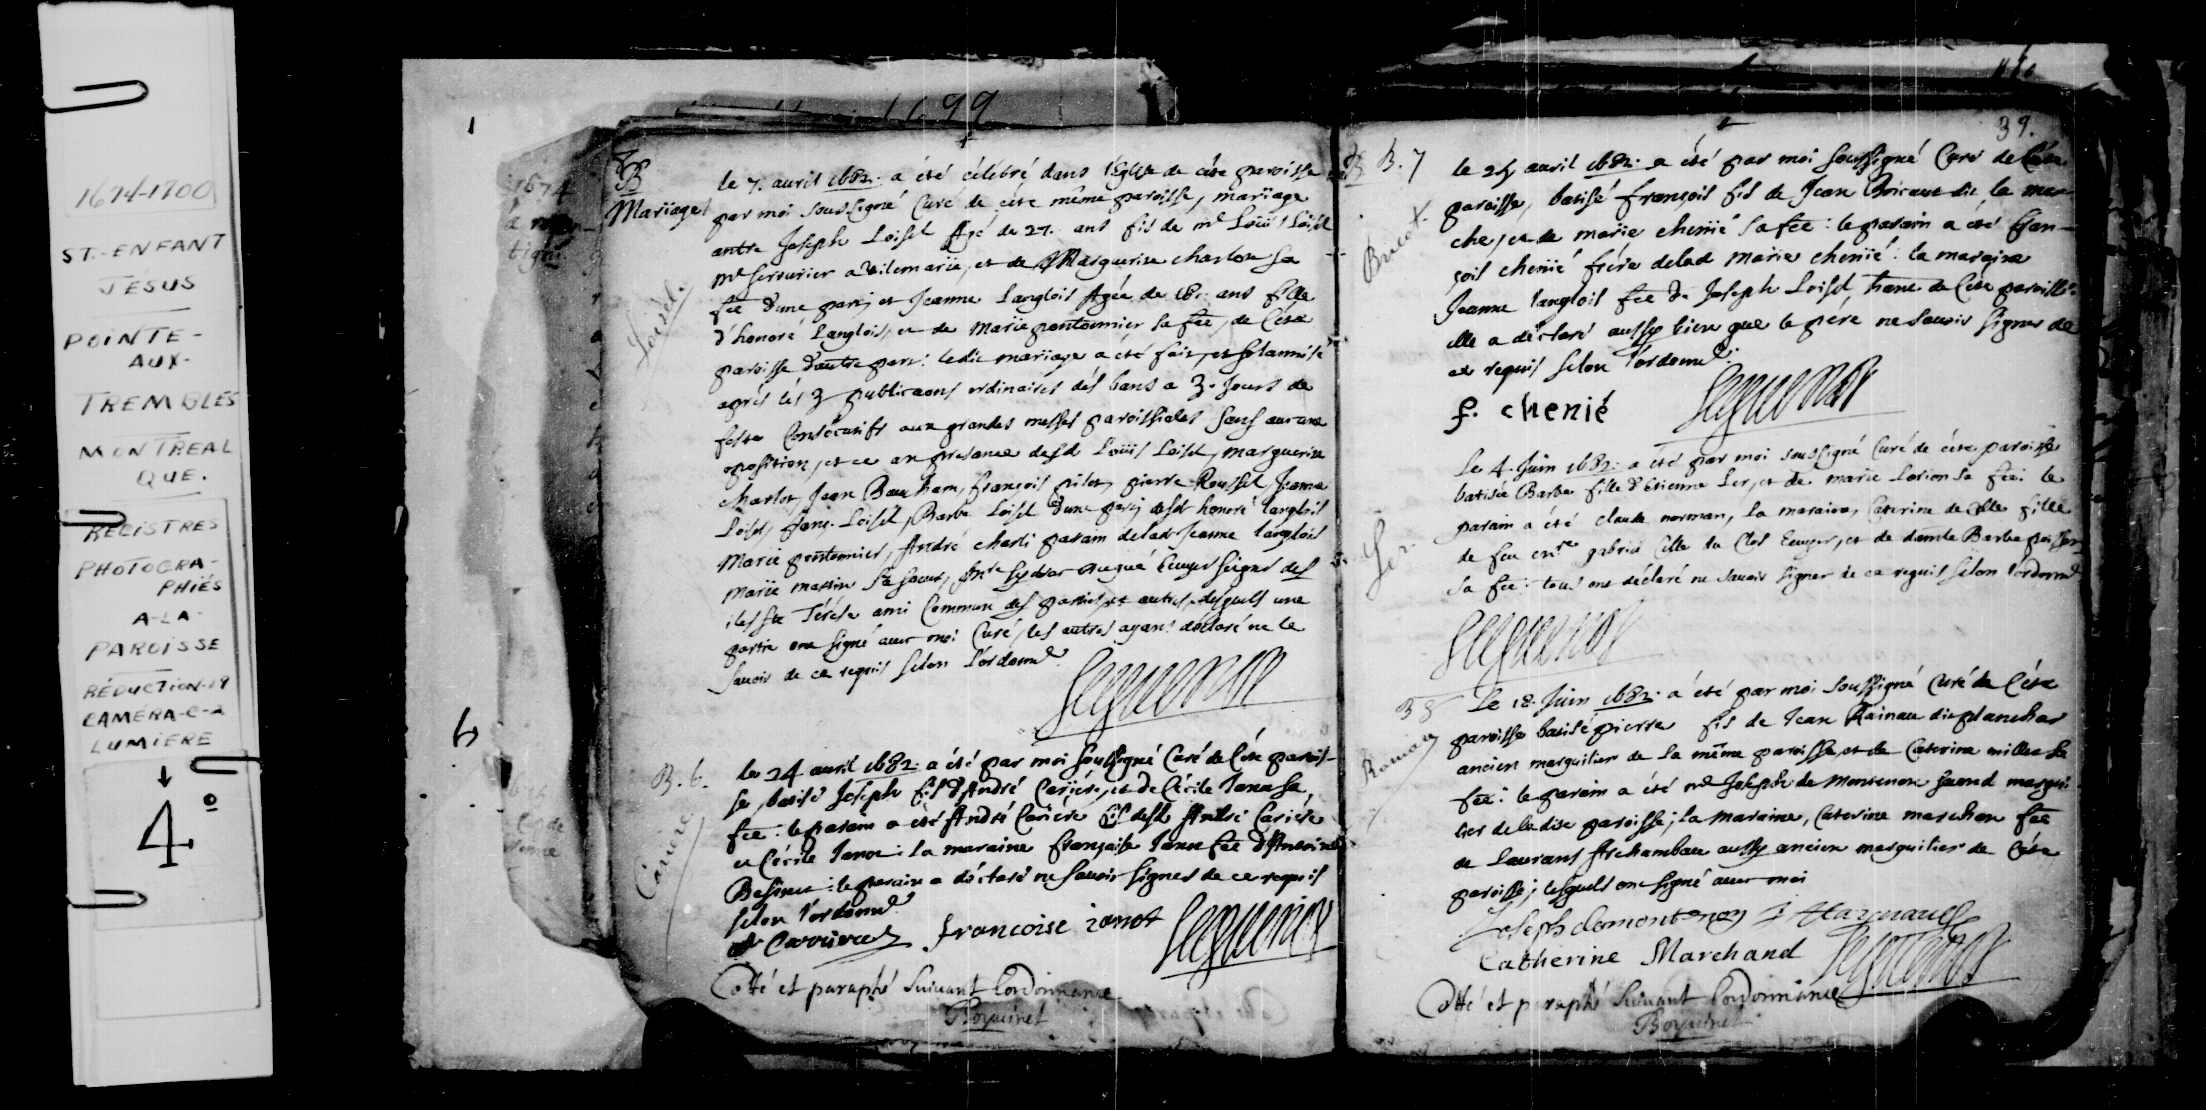 1674-1700
ST.-ENFANT
JÉSUS
POINTE-
AUX-
TREMBLES
MONTREAL
QUE.
REGISTRES
PHOTOGRA-
PHIÉS
A-LA-
PAROISSE
RÉDUCTION-19
CAMÉRA-C-2
LUMIERE
4º
1699
1674
Mariage
Loisel.
le 7. avril 1682. a été célébré dans l'Eglise de cète paroisse
par moi soussigné Curé de cète même paroisse, mariage
antre Joseph Loisel Agé de 27. ans fis de mr Loüis Loisel
mr serrurier a vilemarie, et de Marguerite charlot sa
fée d'une part; et Jeanne Langlois Agée de 18. ans fille
d'honoré Langlois, et de Marie pontonnier sa fée, de Cète
paroisse d'autre part: ledit mariage a été fait, et solamnisé
aprés lés 3 publicaons ordinaires dés bans a 3. Jours de
feste Consécutifs aux grandes messes paroissiales sans aucune
oposition, et ce an presance desd Loüis Loisel, marguerite
charlot, Jean Baucham, françois pilot, pierre Roussel, Jeanne
Loisel, franç. Loisel, Barbe Loisel d'une part; desd honoré langlois
Marie pontonnier, André charli parain delad Jeanne langlois
Marie martin sa soeur, Sydrac dugué Ecuyer signr des
iles ste Térése ami Commun des parties et autres, desquels une
partie ont signé avec moi Curé, les autres ayant déclaré ne le
savoir de ce requis selon l'ordonnce
Seguenot
B. 6.
Cariere
le 24 avril 1682. a été par moi soussigné Curé de Cète parois-
se, batisé Joseph fis d'André Cariére, et de Cécile Janot sa
fée: le parain a été André Cariére fis desd André Cariére
et Cécile Janot: la maraine françoise Janot fée d'Antoine
: le parain a déclaré ne savoir signer de ce requis
selon l'ordonnce
francoise ianot Seguenot
Cotté et paraphé suivant Lordonnance
39.
B. 7
Bricot.
le 25 avril 1682. a été par moi soussigné Curé de Cète
paroisse, batisé françois fis de Jean Bricaut dit la mar-
che, et de marie chenié sa fée: le parain a été fran-
çois chenié frére delad Marie chenié: la maraine
Jeanne langlois fée de Joseph Loisel, hant de Cète paroisse
elle a déclaré aussy bien que le pére ne savoir signer de
ce requis selon l'ordonnce
f. chenié Seguenot
Ler.
Le 4. Juin 1682. a été par moi soussigné Curé de cète paroisse
batisée Barbe fille d'Etienne Ler, et de marie Lorion sa fée: le
parain a été claude norman, la maraine, Caterine de Celle fille
de feu gabriel Celle du Clos Ecuyer, et de damlle Barbe poisson
sa fée: tous ont déclaré ne savoir signer de ce requis selon l'ordonnce
Seguenot
B 8
Le 18. Juin 1682. a été par moi soussigné Curé de Cète
paroisse batisé pierre fis de Jean Rainau dit planchar
ancien marguilier de la même paroisse, et de Caterine millet sa
fée: le parain a été mr Joseph de Montenon second margui-
lier de ladite paroisse; la maraine, Caterine marchan fée
de Laurans Archambau aussy ancien marguilier de Cète
paroisse; lesquels ont signé avec moi
Joseph demontenon
Catherine Marchand Seguenot
Cotté et paraphé suivant Lordonnance